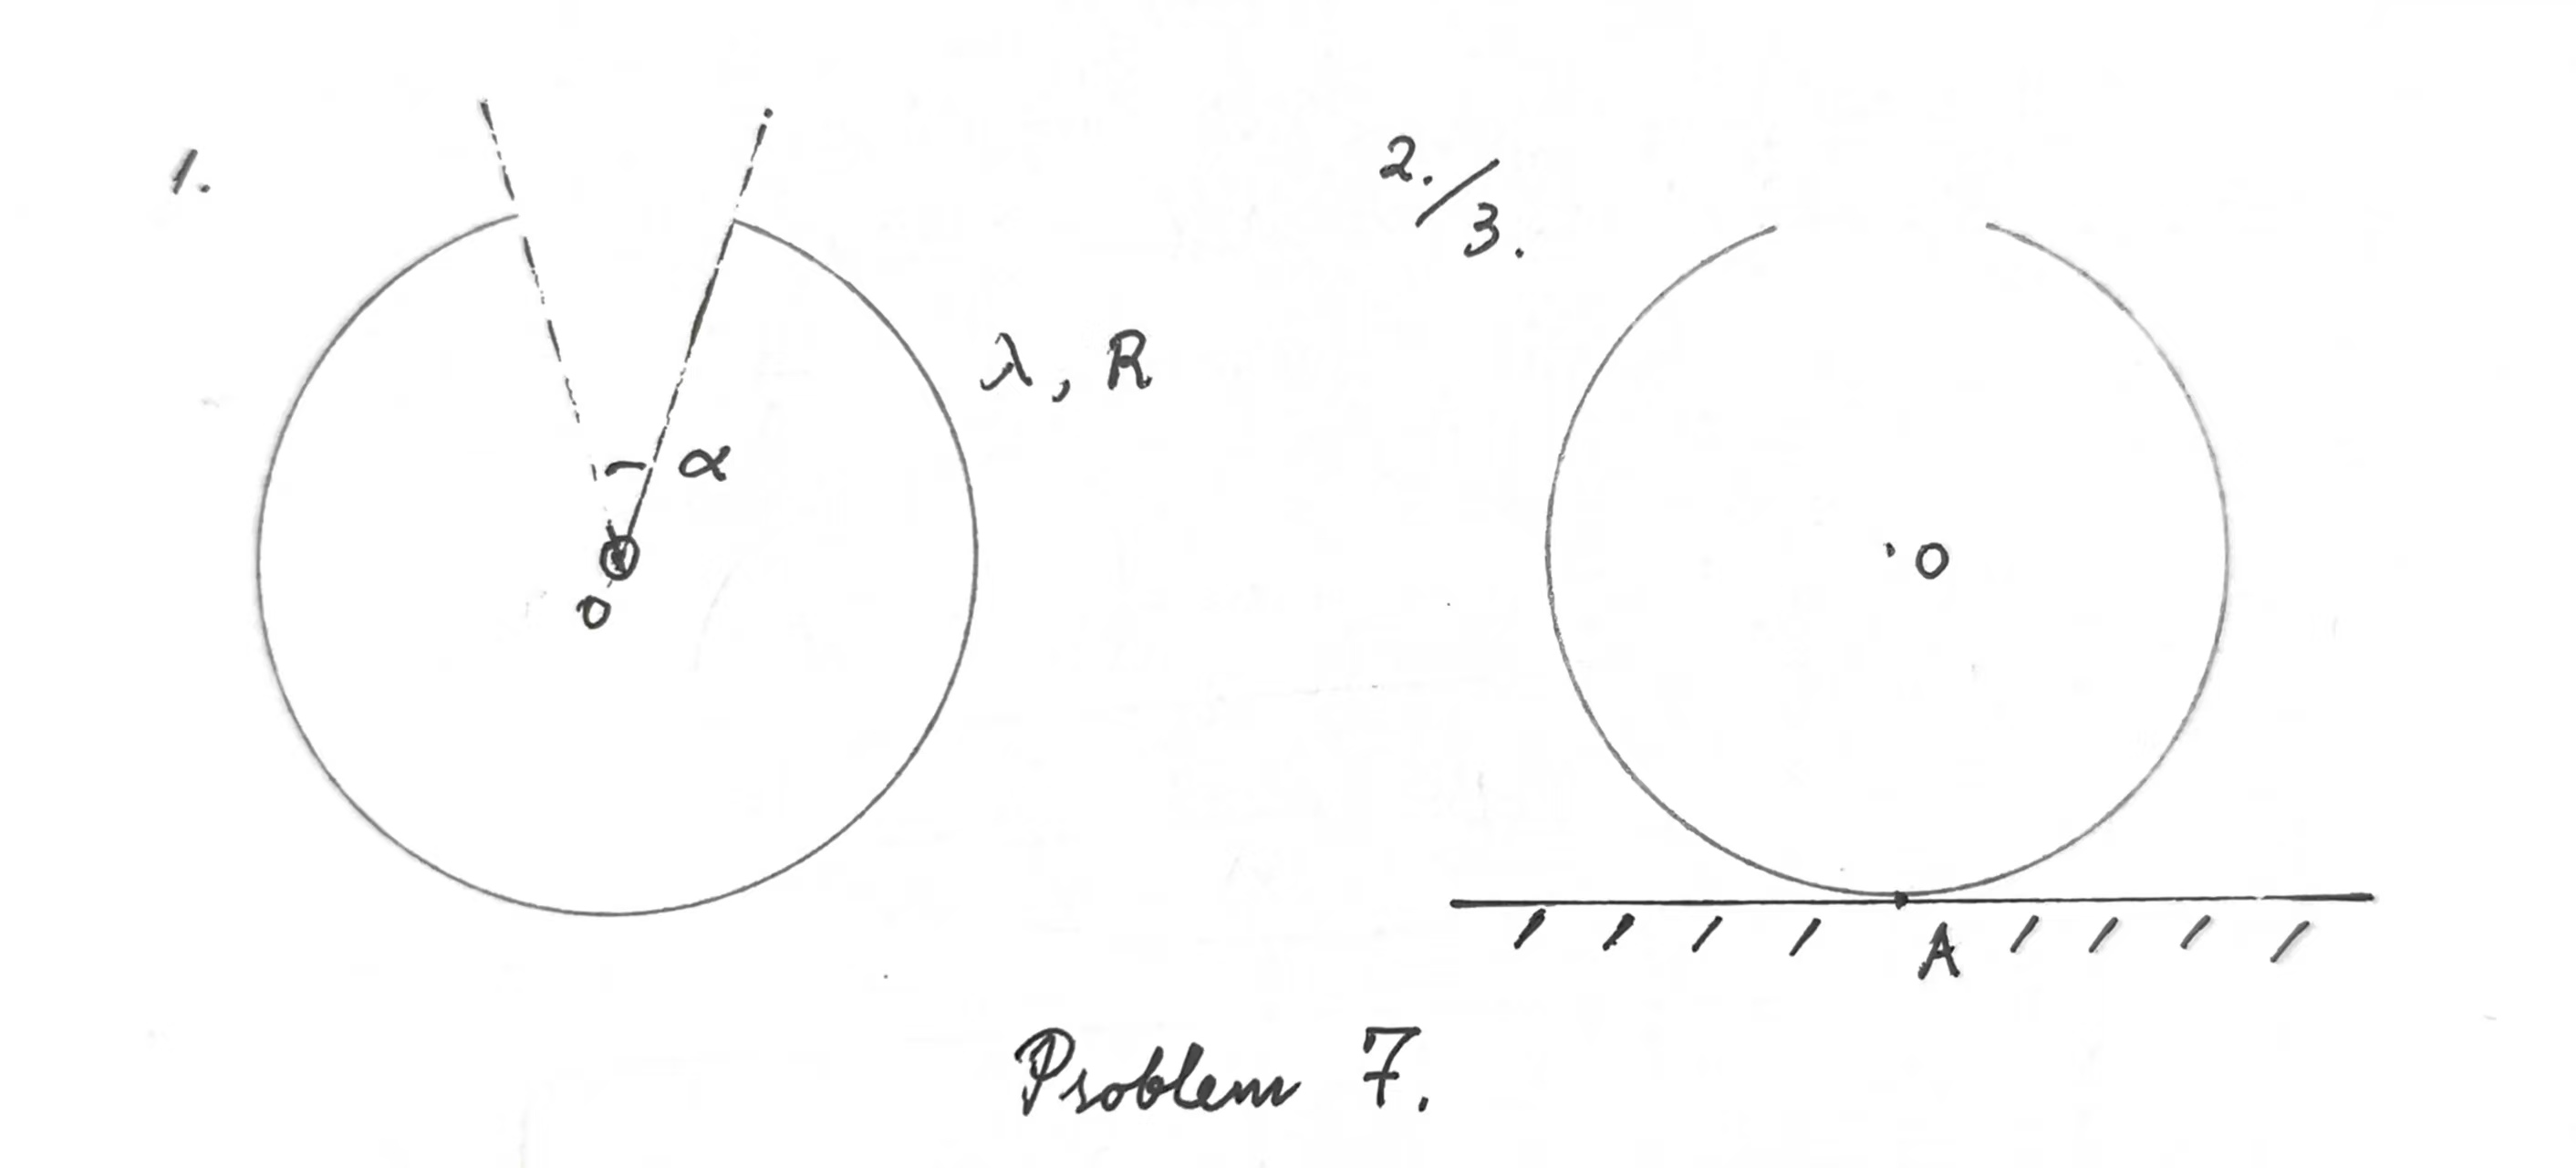 1.
λ, R
α
O
2./3.
O
A
Problem 7.